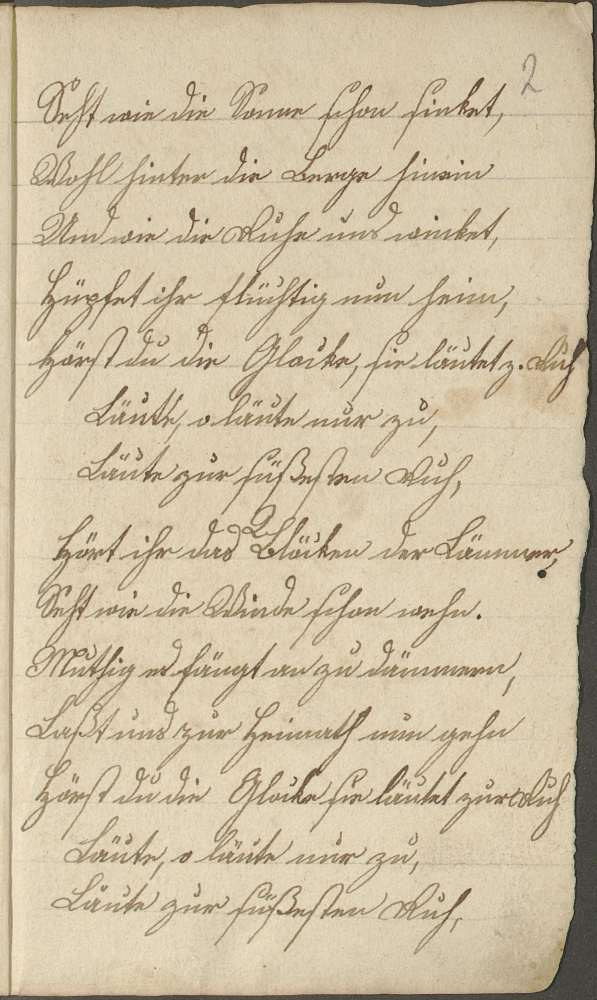 2
Seht wie die Sonne schon sinket,
Wohl hinter die Berge hinein
Und wie die Ruhe uns winket,
Hüpfet ihr flüchtig nun heim,
Hörst du die Glocke, sie läutet z. Ruh
Läute, o läute nur zu,
Läute zur süßesten Ruh,
Hört ihr das Blöcken der Lämmer,
Seht wie die Winde schon wehn.
Muthig es fängt an zu dämmern,
Laßt uns zur Heimath nun gehn
Hörst du die Glocke sie läutet zur Ruh
Läute, o läute nur zu,
Läute zur süßesten Ruh,